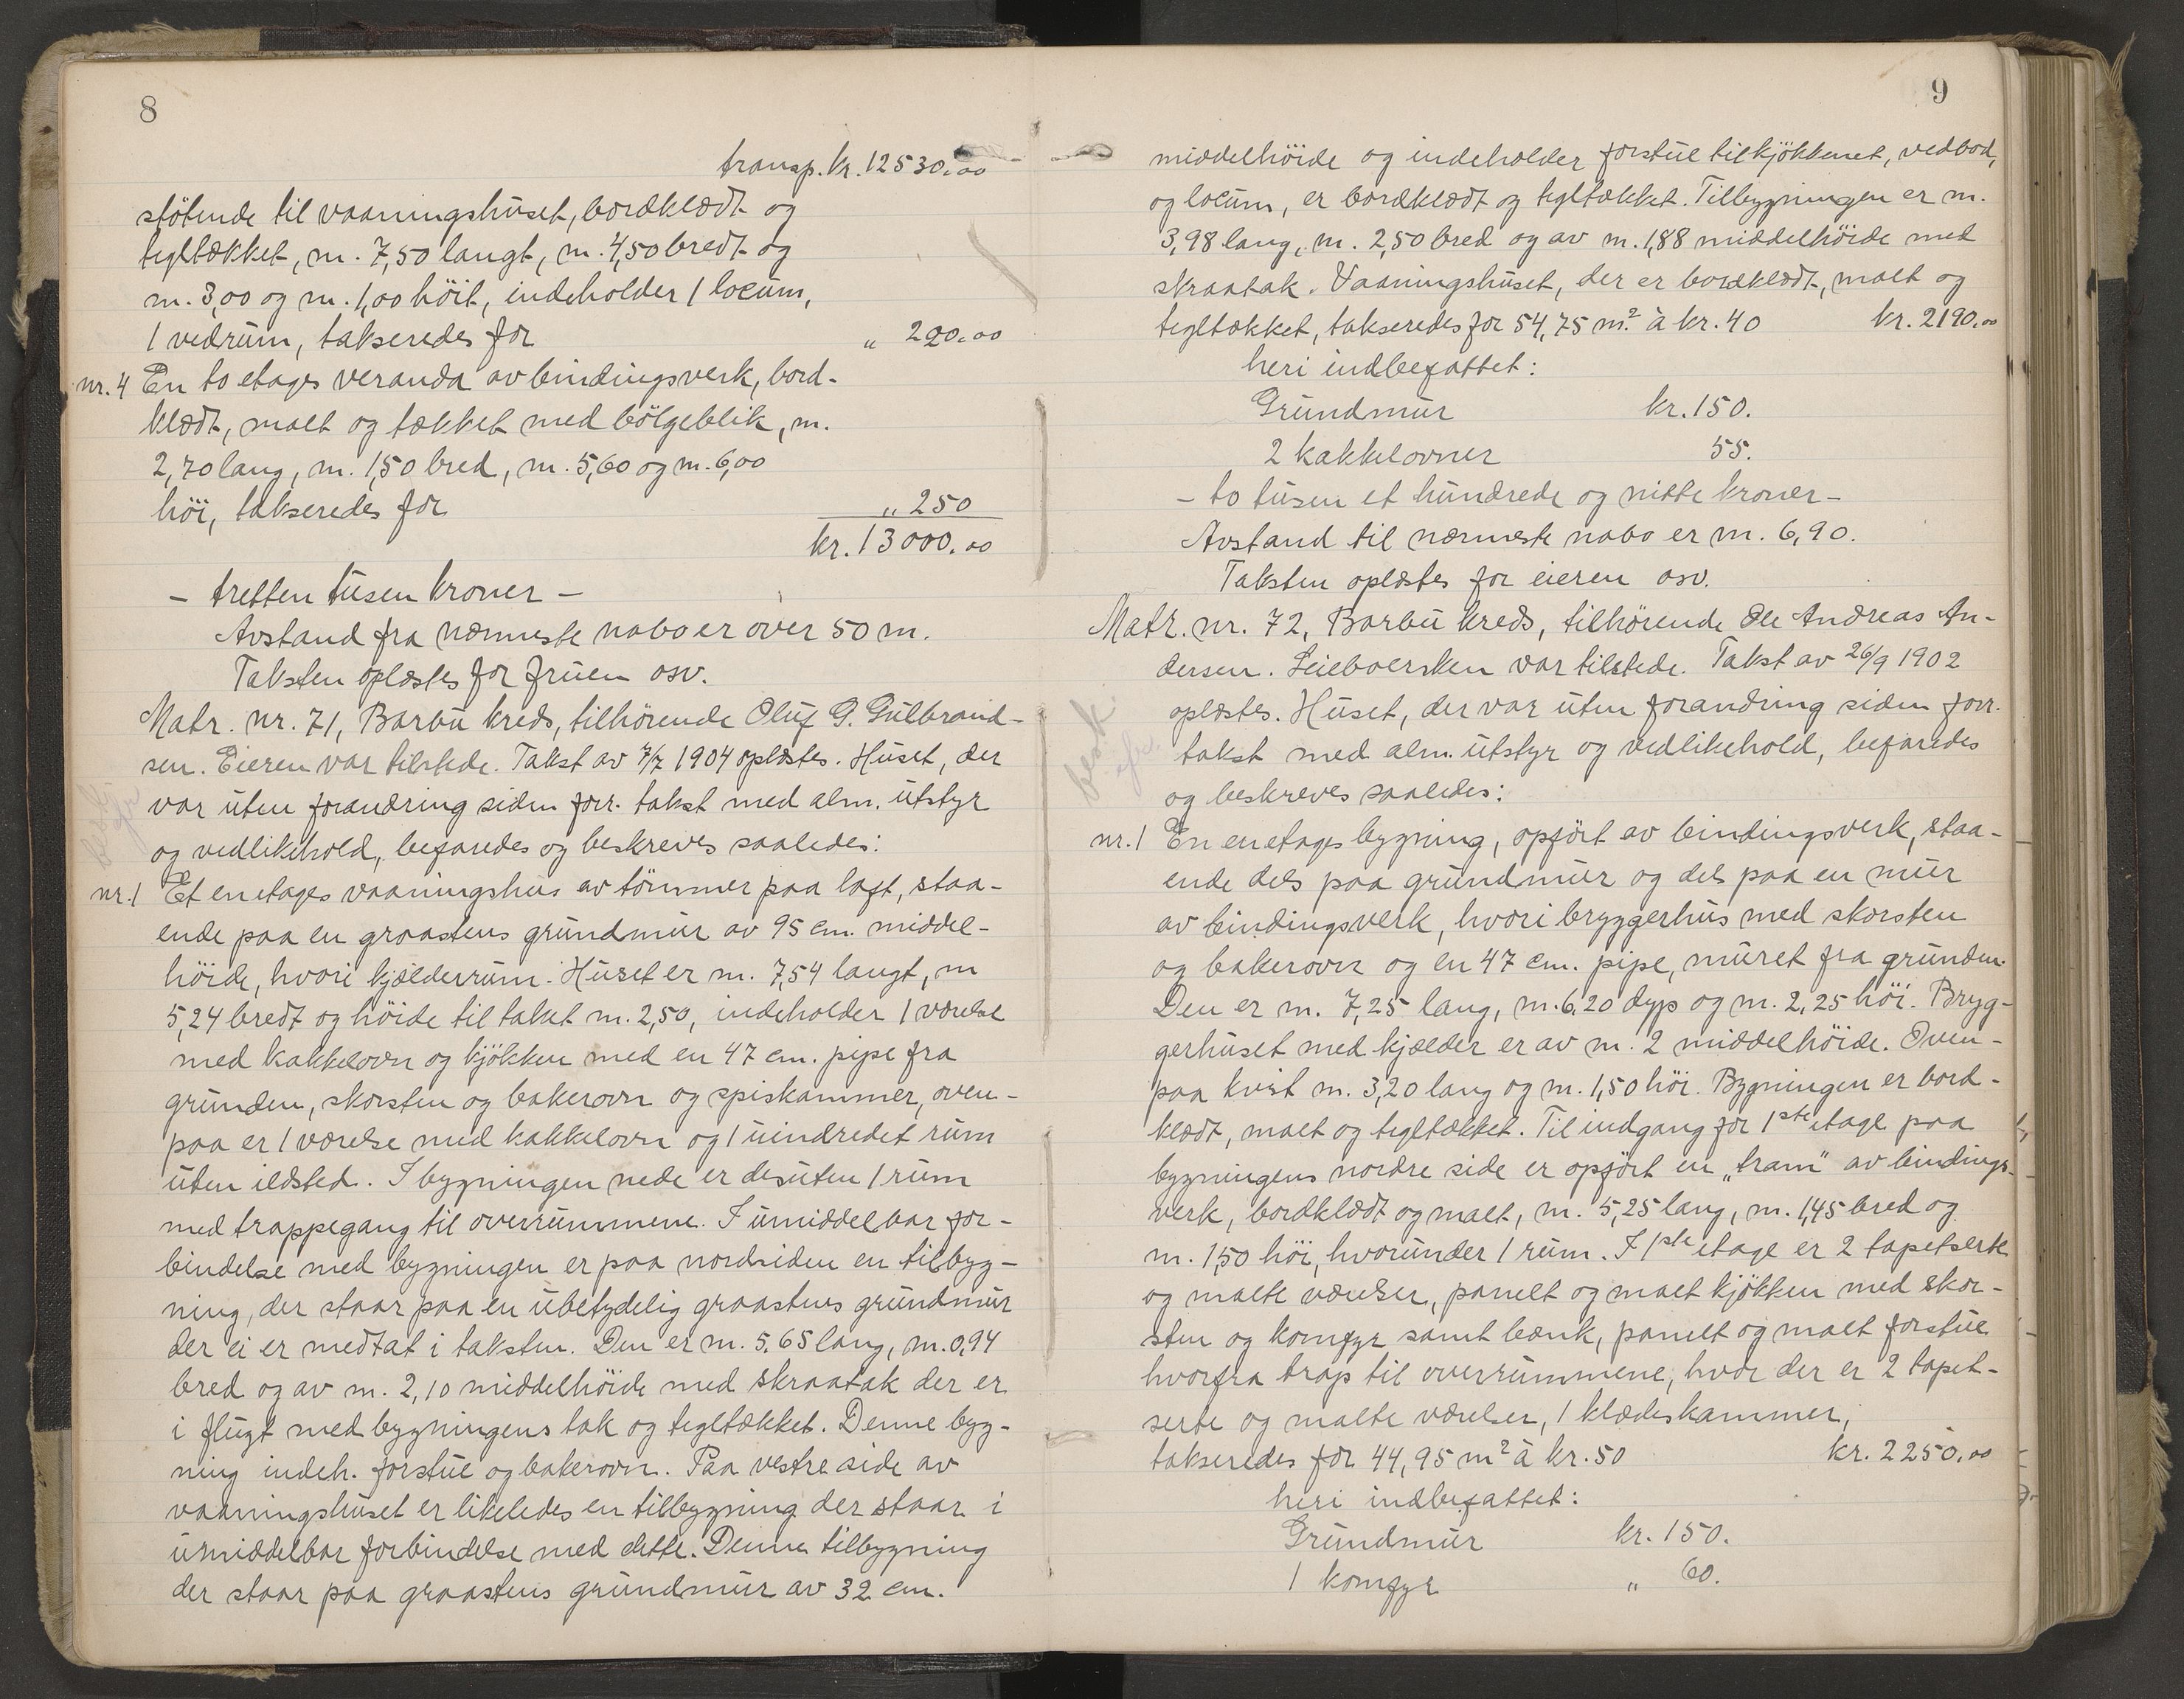 8
transp. kr. 12530.00
stötende til vaaningshuset, bordklædt og
tegltækket, m. 7,50 langt, m. 4,50 bredt og
m. 3,00 og m. 1,00 höit, indeholder 1 locum,
1 vedrum, takseredes for „ 220.00
nr. 4 En to etages veranda av bindingsverk, bord-
klædt, malt og tækket med bölgeblik, m.
2,70 lang, m. 1,50 bred, m. 5,60 og m. 6,00
höi, takseredes for „ 250
kr. 13000.00
- tretten tusen kroner -
Avstand fra nærmeste nabo er over 50 m.
Taksten oplæstes for fruen osv.
Matr. nr. 71, Barbu kreds, tilhörende Oluf G. Gulbrand-
sen. Eieren var tilstede. Takst av 7/7 1904 oplæstes. Huset, der
var uten forandring siden forr. takst med alm. utstyr
og vedlikehold, befaredes og beskreves saaledes:
nr. 1 Et en etages vaaningshus av tömmer paa loft, staa-
ende paa en graastens grundmur av 95 cm. middel-
höide, hvori kjælderrum. Huset er m. 7,54 langt, m
5,24 bredt og höide til taket m. 2,50, indeholder 1 værelse
med kakkelovn og kjökken med en 47 cm. pipe fra
grunden, skorsten og bakerovn og spiskammer, oven-
paa er 1 værelse med kakkelovn og 1 uindredet rum
uten ildsted. I bygningen nede er desuten 1 rum
med trappegang til overrummene. I umiddelbar for-
bindelse med bygningen er paa nordsiden en tilbyg-
ning, der staar paa en ubetydelig graastens grundmur
der ei er medtat i taksten. Den er m. 5,65 lang, m. 0,94
bred og av m. 2,10 middelhöide med skraatak der er
i flugt med bygningens tak og tegltækket. Denne byg-
ning indeh. forstue og bakerovn. Paa vestre side av
vaaningshuset er likeledes en tilbygning der staar i
umiddelbar forbindelse med dette. Denne tilbygning
der staar paa graastens grundmur av 32 cm.
9
middelhöide og indeholder forstue til kjökkenet, vedbod,
og locum, er bordklædt og tegltækket. Tilbygningen er m.
3,98 lang, m. 2,50 bred og av m. 1,88 middelhöide med
skraatak. Vaaningshuset, der er bordklædt, malt og
tegltækket, takseredes for 54,75 m.² à kr. 40 kr. 2190.00
heri indbefattet:
Grundmur kr. 150.
2 kakkelovner 55.
- to tusen et hundrede og nitte kroner -
Avstand til nærmeste nabo er m. 6,90.
Taksten oplæstes for eieren osv.
Matr. nr. 72, Barbu kreds, tilhörende Ole Andreas An-
dersen. Leieboersken var tilstede. Takst av 26/9 1902
oplæstes. Huset, der var uten forandring siden forr.
takst med alm. utstyr og vedlikehold, befaredes
og beskreves saaledes:
nr. 1 En enetages bygning, opfört av bindingsverk, staa-
ende dels paa grundmur og dels paa en mur
av bindingsverk, hvori bryggerhus med skorsten
og bakerovn og en 47 cm. pipe, muret fra grunden.
Den er m. 7,25 lang, m. 6,20 dyp og m. 2,25 höi. Bryg-
gerhuset med kjælder er av m. 2 middelhöide. Oven-
paa kvist m. 3,20 lang og m. 1,50 höi. Bygningen er bord-
klædt, malt og tegltækket. Til indgang for 1ste etage paa
bygningens nordre side er opfört en „tram" av bindings-
verk, bordklædt og malt, m. 5,25 lang, m. 1,45 bred og
m. 1,50 höi, hvorunder 1 rum. I 1ste etage er 2 tapetserte
og malte værelser, panelt og malt kjökken med skor-
sten og komfyr samt bænk, panelt og malt forstue
hvorfra trap til overrummene, hvor der er 2 tapet-
serte og malte værelser, 1 klædeskammer,
takseredes for 44,95 m² à kr. 50 kr. 2250.00
heri indbefattet:
Grundmur kr. 150.
1 komfyr „ 60.